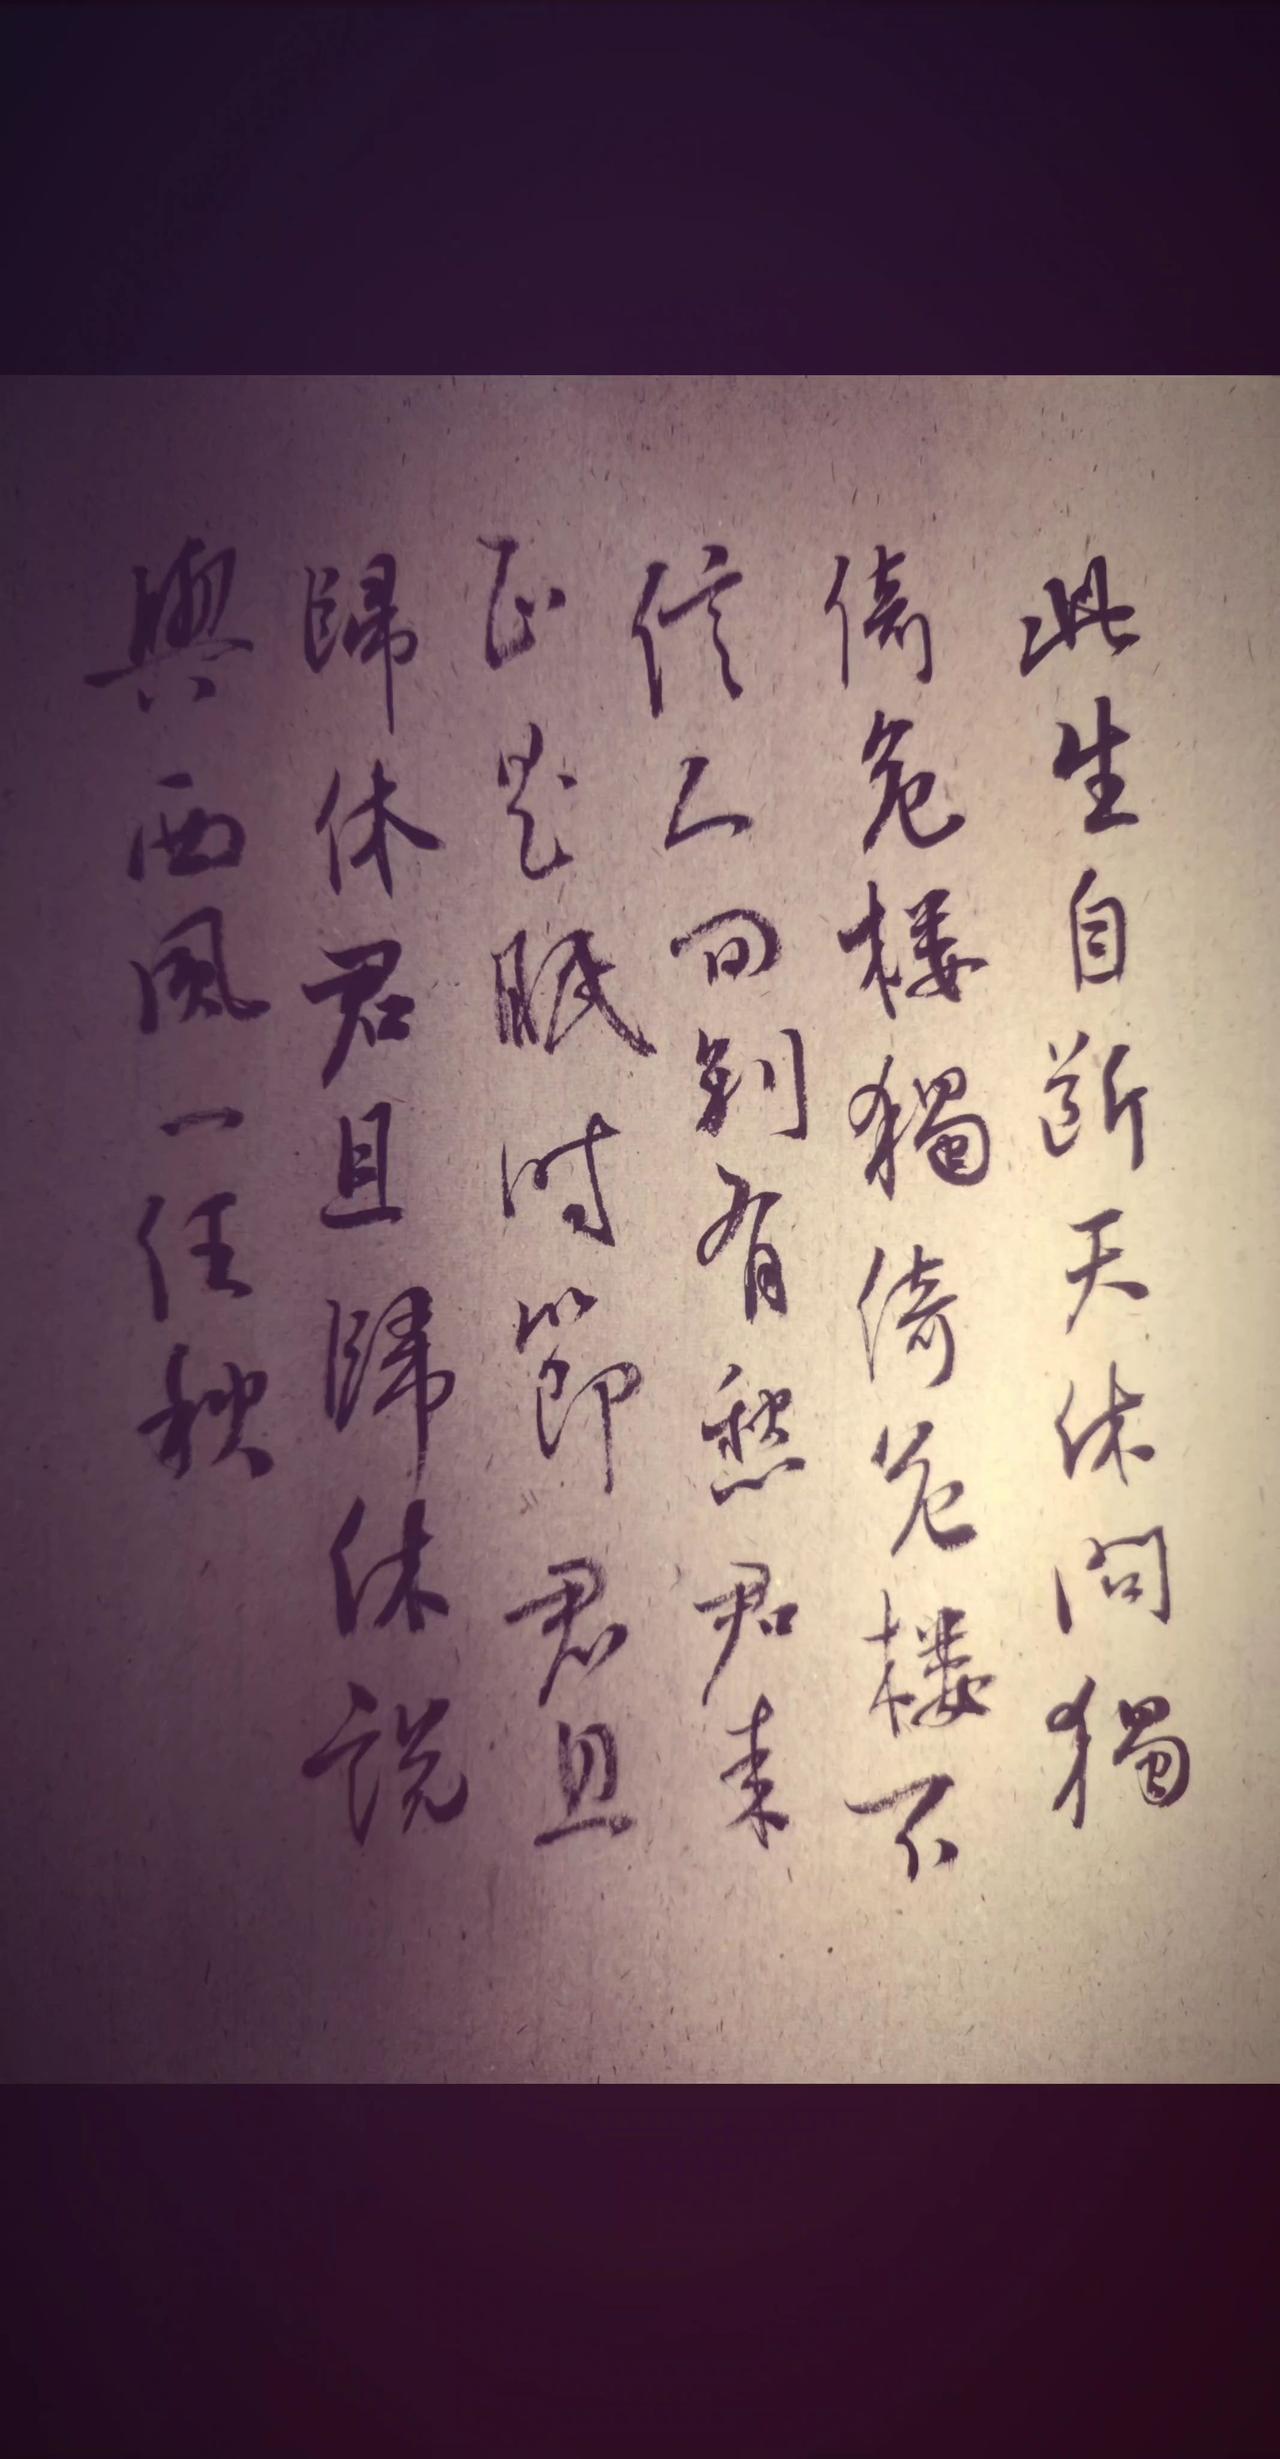 此生自断天休问獨
倚危楼獨倚危楼不
信人间别有愁君来
正是眠时節君且
歸休君且歸休说
與西風一任秋